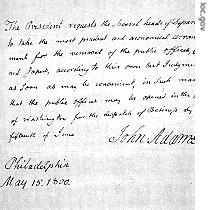 loc.gov
The President requests the several heads of Depart
to take the most prudent and economical arran
ment for the removal of the public offices,
and Papers, according to their own best Judgme
as soon as may be convenient, in such man
that the public offices may be opened in the
of Washington for the dispatch of Business by
fifteenth of June
John Adams
Philadelphia
May 15. 1800.